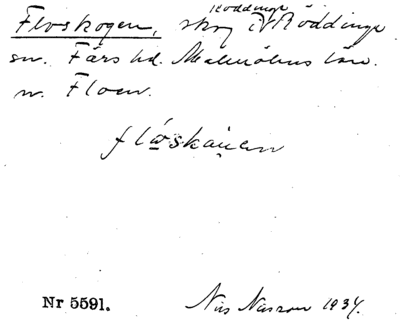 Röddinge
Floskogen, skog i Röddinge
sn. Färs hd. Malmöhus län.
n. Floen.
flɷskåuen
Nr 5591. Nils Nilsson 1934.